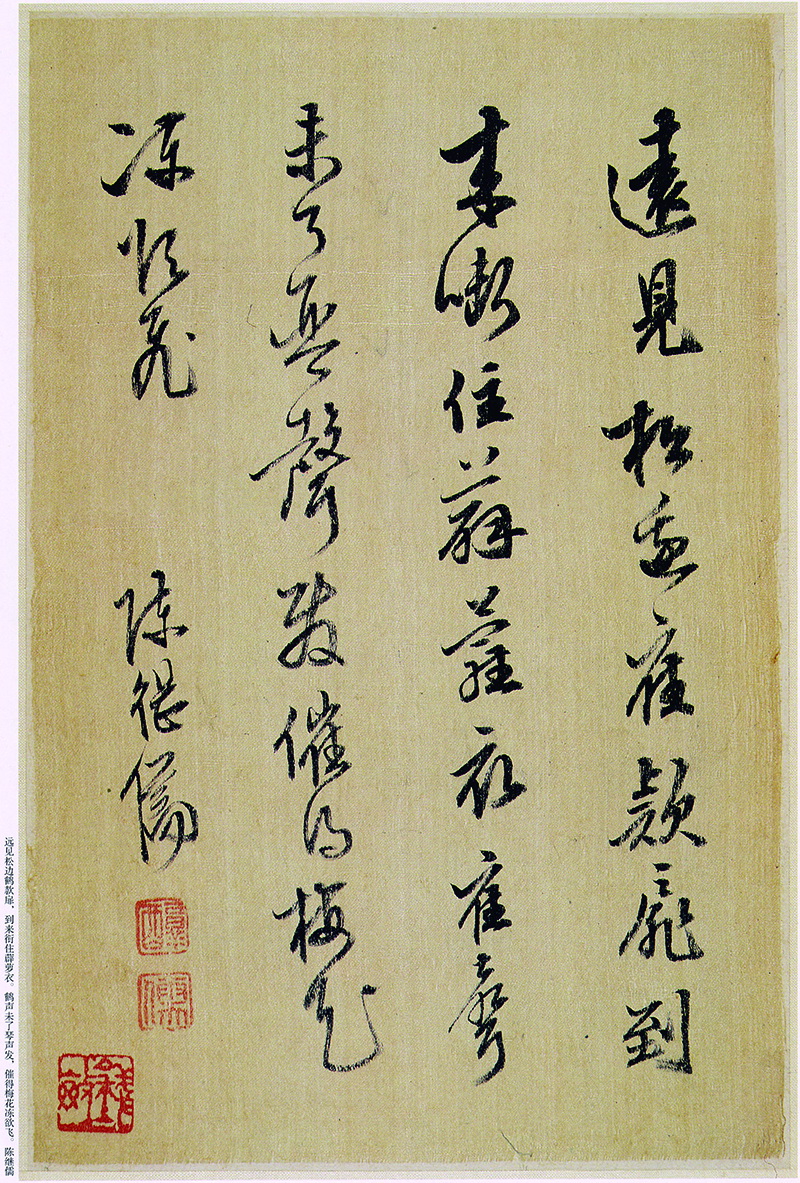 遠見松邊隺款扉到
来啣住薜蘿衣隺聲
未了琴聲發催得梅花
冻欲飛
陳繼儒
远见松边鹤款扉，到来衔住薜萝衣。鹤声未了琴声发，催得梅花冻欲飞。 陈继儒